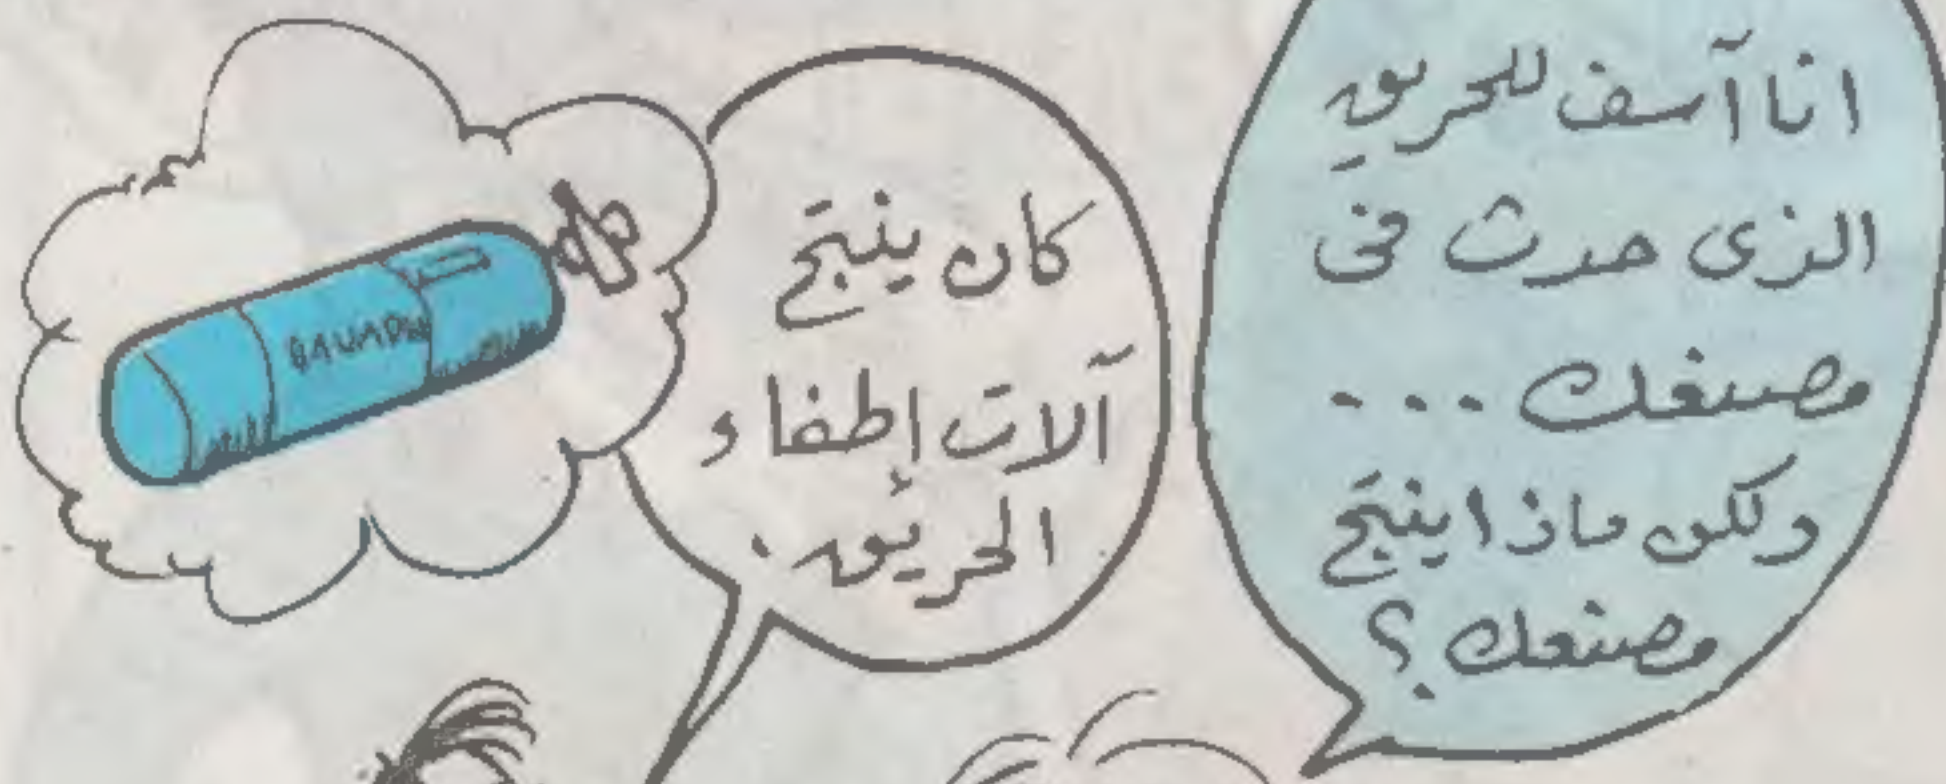 انا آسف للحريق
الذى حدث فى
مصنعك ...
ولكن ماذا ينتج
مصنعك ؟
كان ينتج
آلات إطفاء
الحريق .